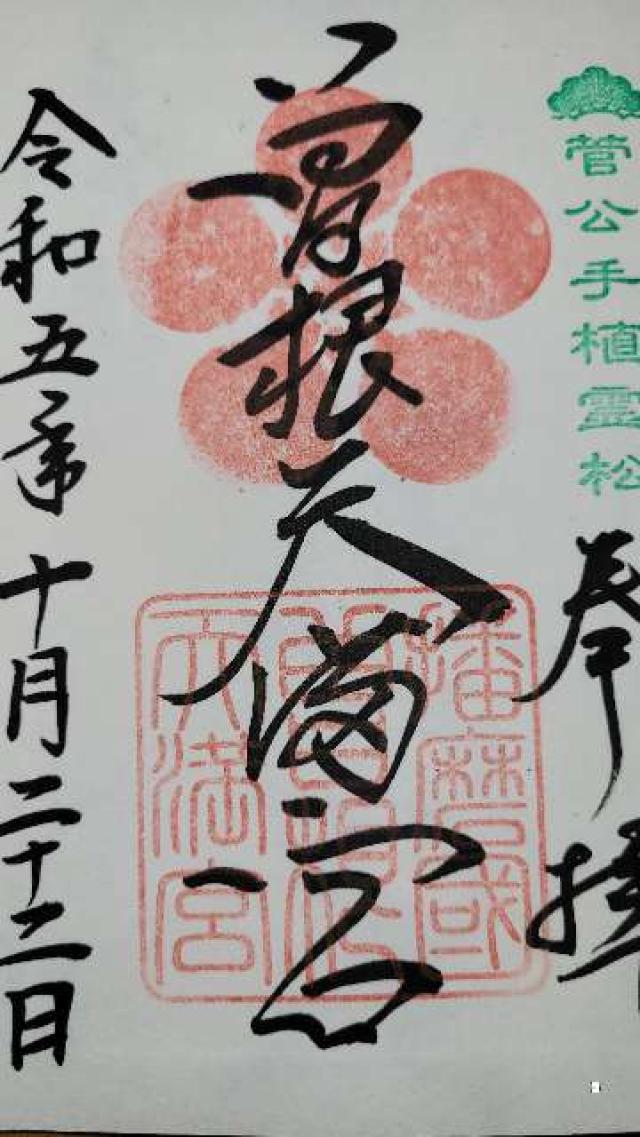 菅公手植霊松
奉拝
曽根天満宮
播磨國
曽根
天満宮
令和五年十月二十二日